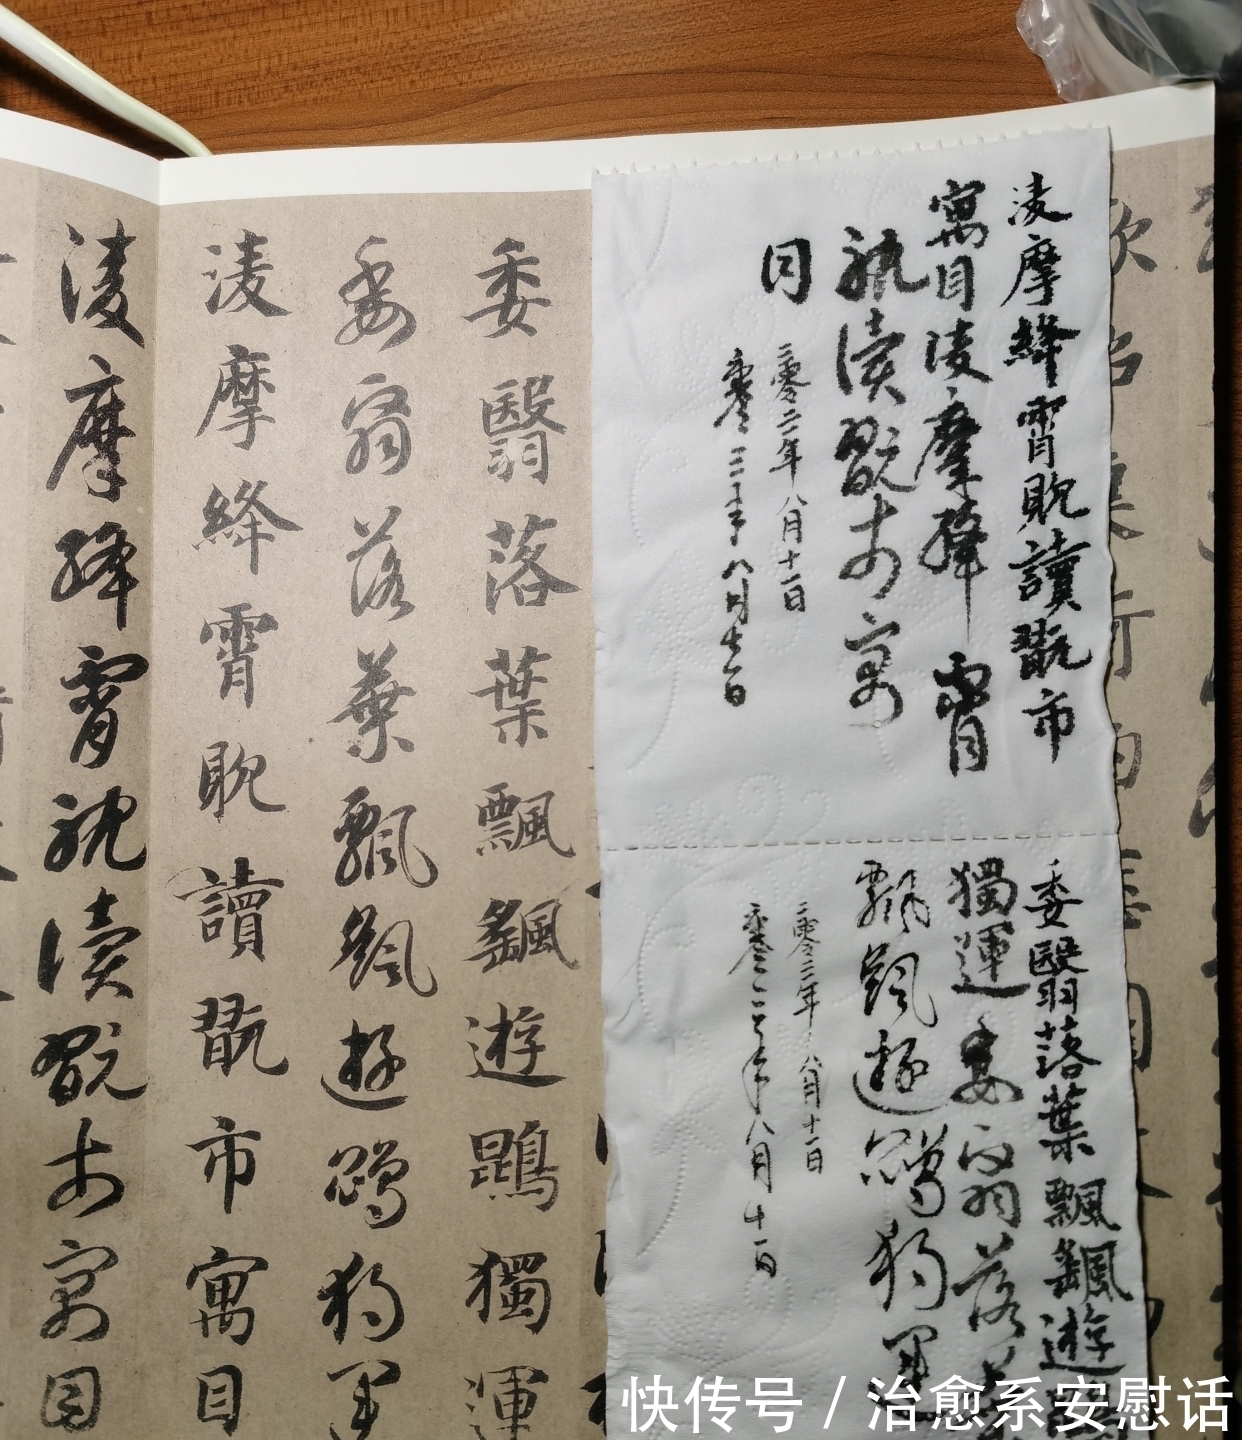 凌摩絳霄耽讀翫市
寓目凌摩絳霄
耽讀翫市寓
目
二零二二年八月十一日
二零二二年八月十一日
委翳落葉飄颻遊鵾
獨運委翳落葉
飄颻遊鵾獨運
二零二二年八月十一日
二零二二年八月十一日
委翳落葉飄颻遊鵾獨運
委翳落葉飄颻遊鵾獨運
凌摩絳霄耽讀翫市寓目
凌摩絳霄耽讀翫市寓目
快传号 / 治愈系安慰话